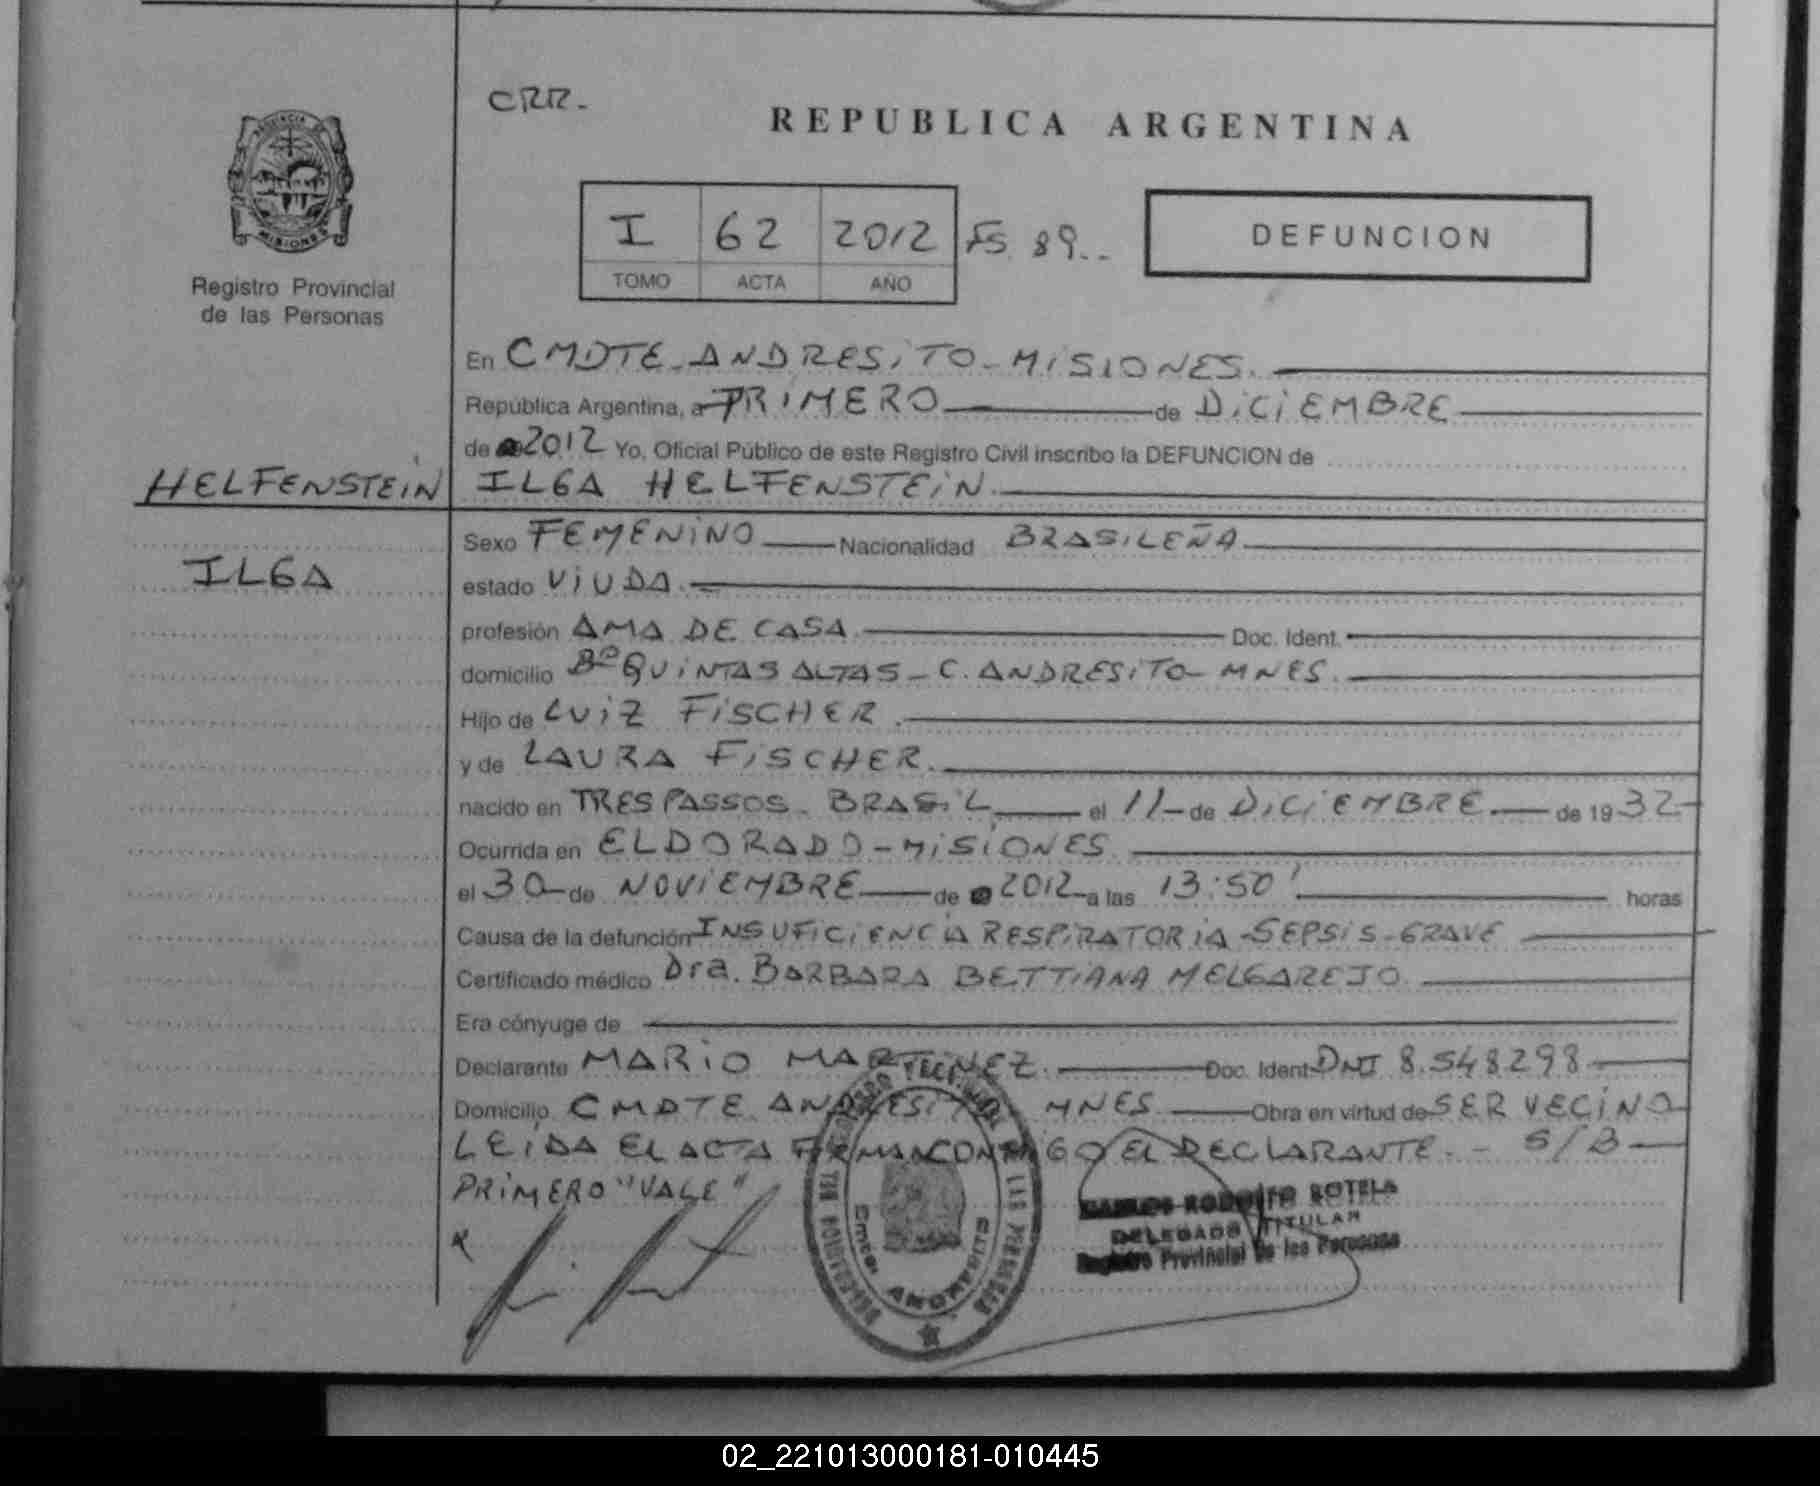 CRR.
REPUBLICA ARGENTINA
PROVINCIA DE
MISIONES
Registro Provincial
de las Personas
I 62 2012 FS. 89..
TOMO ACTA AÑO
DEFUNCION
En CMDTE. ANDRESITO - MISIONES.
República Argentina, a PRIMERO de DICIEMBRE
de 2012 Yo, Oficial Público de este Registro Civil inscribo la DEFUNCION de
HELFENSTEIN
ILGA HELFENSTEIN.
ILGA
Sexo FEMENINO Nacionalidad BRASILEÑA
estado VIUDA.
profesión AMA DE CASA Doc. Ident.
domicilio Bº QUINTAS ALTAS - C. ANDRESITO - MNES.
Hijo de LUIZ FISCHER.
y de LAURA FISCHER.
nacido en TRES PASSOS - BRASIL el 11 de DICIEMBRE de 1932
Ocurrida en ELDORADO - MISIONES
el 30 de NOVIEMBRE de 2012 a las 13:50' horas
Causa de la defunción INSUFICIENCIA RESPIRATORIA - SEPSIS - GRAVE
Certificado médico Dra. BARBARA BETTIANA MELGAREJO
Era cónyuge de
Declarante MARIO MARTINEZ. Doc. Ident. DNI 8.548298
Domicilio CMDTE. ANDRESITO MNES Obra en virtud de SER VECINO
LEIDA EL ACTA FIRMAN CONMIGO EL DECLARANTE. - S/B
PRIMERO "VALE"
CARLOS RODOLFO SOTELA
DELEGADO TITULAR
Registro Provincial de las Personas
02_221013000181-010445